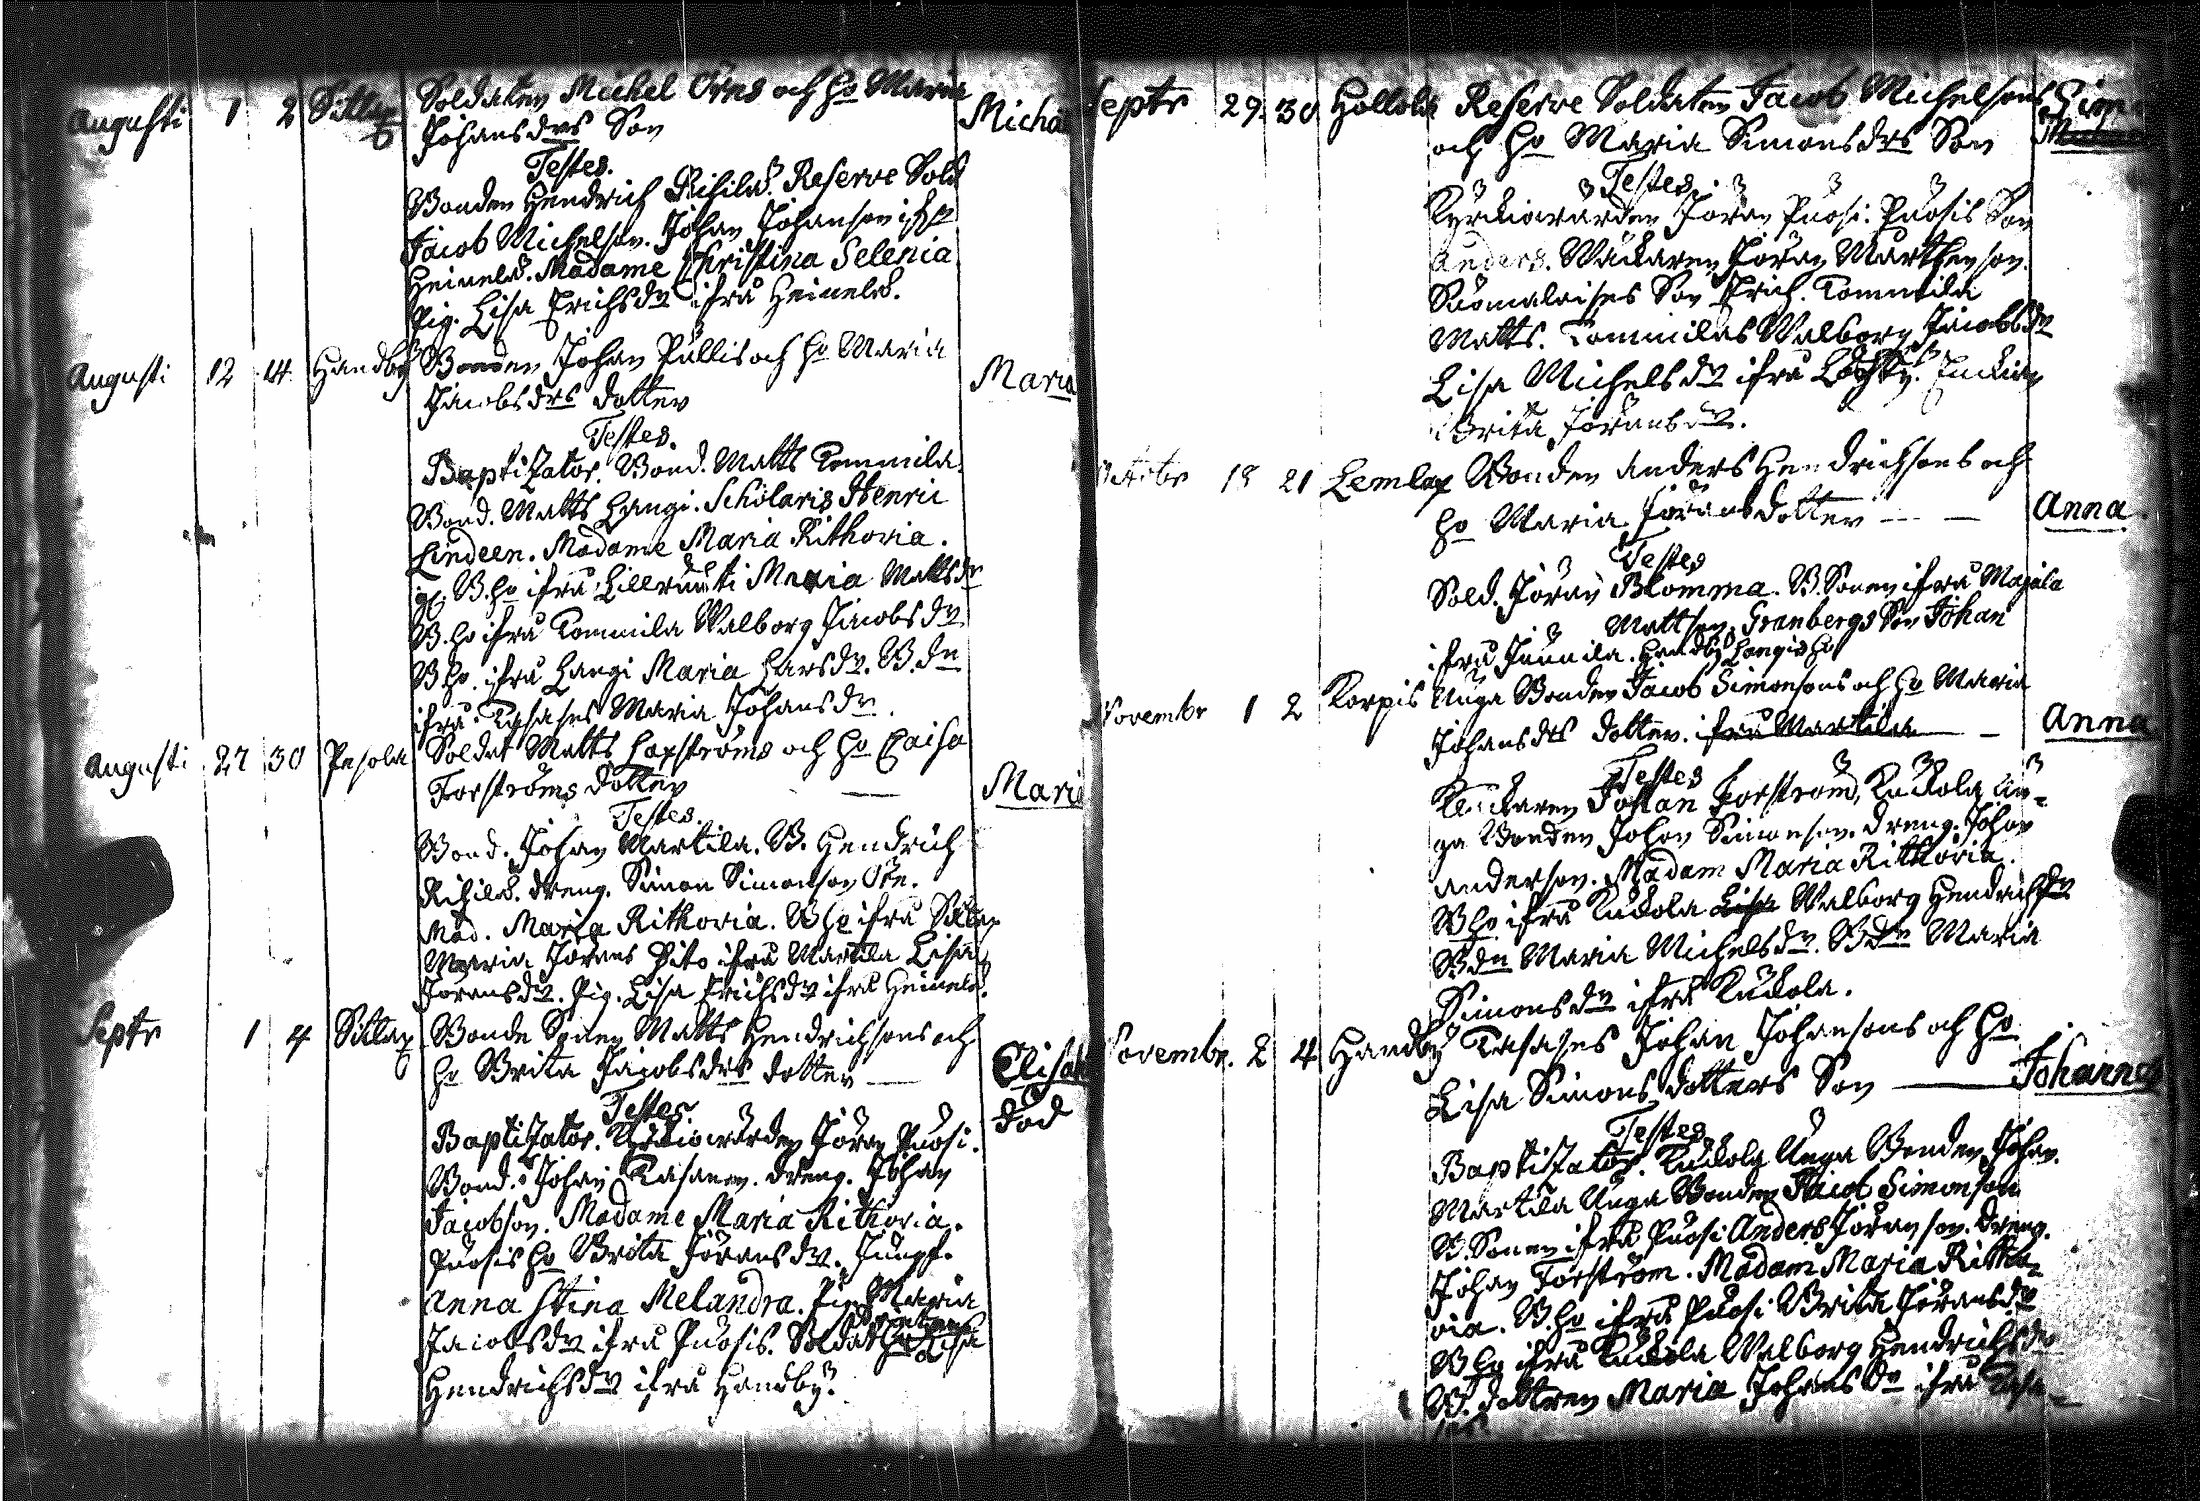 Augusti 1 2 Sittlax Soldaten Michel Örns och ho Maria
Johansdrs Son Micha
Testes.
Bonden Hendrich Rihilä. Reserve Sold
Jacob Michelson. Johan Johanson
Heinelä. Madame Christina Selenia
Pig. Lisa Erichsdr ifrå Heinelä.
Augusti 12 14 Handby Bonden Johan Pullis och ho Maria
Jacobsdrs dotter Maria
Testes.
Baptizator. Bond. Matts Tommila.
Bond. Matts Hangi. Scholaris Henric
Lindeen. Madame Maria Rithovia.
B. ho ifrå Maria Mattsdr
B. ho ifrå Tommila Walborg Jacobsdr
B ho. ifrå Hangi Maria Larsdr. B. dn
ifrå Maria Johansdr.
Augusti 27 30 Pesola Soldat Matts Laxströms och ho Caisa
Forströms dotter Mari
Testes.
Bond. Johan Martila. B. Hendrich
Rihilä. dreng. Simon Simonson
Mad. Maria Rithovia. B ho ifrå Sittlax
Maria Jörans Dito ifrå Martila Lisa
Joransdr. Pig. Lisa Erichsdr ifrå Heinelä.
Septr 1 4 Sittlax Bonde Sonen Matts Hendrichsons och
ho Brita Jacobsdrs dotter Elisab
Testes. död
Baptizator. Kyrkiowärden Jöran Puosi.
Bond. Johan Kasanen. dreng. Johan
Jacobson. Madame Maria Rithovia.
Puosis ho Brita Jöransdr. Jungf.
Anna Stina Melandra. Pig Maria
Jacobsdr ifrå Puosis. Soldat ho Lisa
Hendrichsdr ifrå Handby.
Septr 29. 30 Hollola Reserve Soldaten Jacob Michelsons Simo
och ho Maria Simonsdrs Son
Testes.
Kyrkiowärden Jöran Puosi. Puosis Son
Anders. Jöran Marthenson.
Suomalaises Son Erich. Tommila
Matts. Tommilas Walborg Jacobsdr
Lisa Michelsdr ifrå Enkian
Brita Jöransdr.
Octobr 18 21 Lemlax Bonden Anders Hendrichsons och
ho Maria Jöransdotter Anna
Testes
Sold. Jöran Blomma. B. Sonen ifrå Majala
Mattson. Granbergs Son Johan
ifrå Junnila. Handby Hangis ho
Novembr 1 2 Korpis Unga Bonden Jacob Simonsons och ho Maria
Johansdrs dotter. ifrå Martila Anna
Testes
Johan Forström, Kuckola Un-
ga Bonden Johan Simonson. dreng. Johan
Anderson. Madam Maria Rithovia.
B ho ifrå Kuckola Lisa Walborg Hendrichsdr
Bdn Maria Michelsdr. Bdn Maria
Simonsdr ifrå Kuckola.
Novembr. 2 4 Handby Johan Johansons och ho
Lisa Simons dotters Son Johannes
Testes
Baptizator. Kuckola Unga Bonden Johan.
Martila Unga Bonden Jacob Simonson
B. Sonen ifrå Puosi Anders Jöranson. dreng.
Johan Forström. Madam Maria Ritho-
via. B. ho ifrå Puosi Brita Jöransdr
B ho ifrå Kuckola Walborg Hendrichsdr
B. dottren Maria Johansdr ifrå